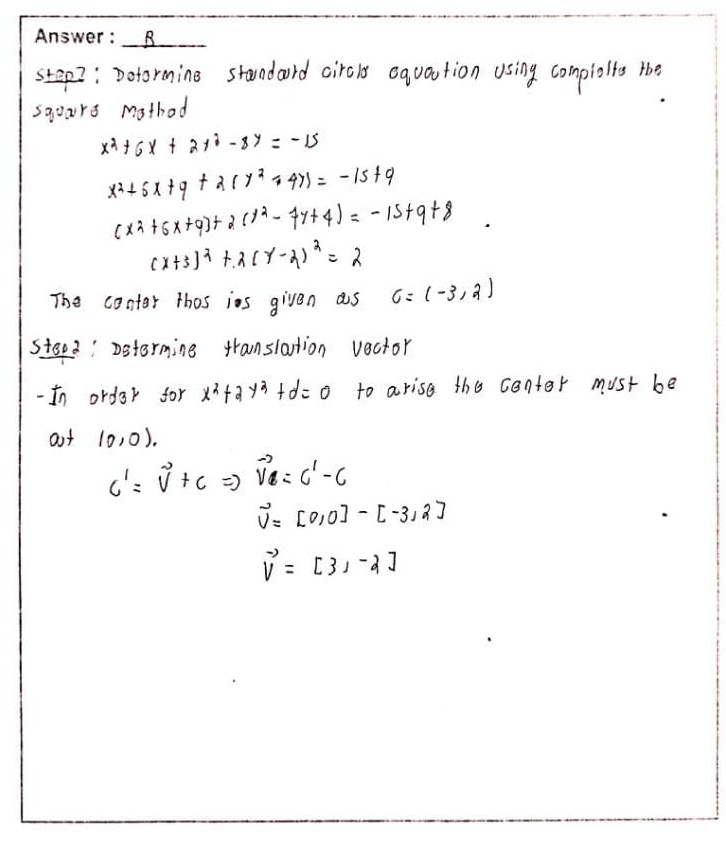 Answer : B
Step1 : Determine standard circle equation using complelte the
square Method
x²+6x + 2y² -8y = -15
x²+6x+9 +2(y² -4y) = -15+9
(x²+6x+9)+2(y²-4y+4) = -15+9+8
(x+3)² +2(y-2)² = 2
The center thos ios given as C=(-3,2)
Step2 : Determine translation vector
-In order for x²+2y²+d=0 to arise the center must be
at (0,0).
C' = V⃗ +C ⇒ V⃗ = C' -C
V⃗ = [0,0] - [-3,2]
V⃗ = [3, -2]